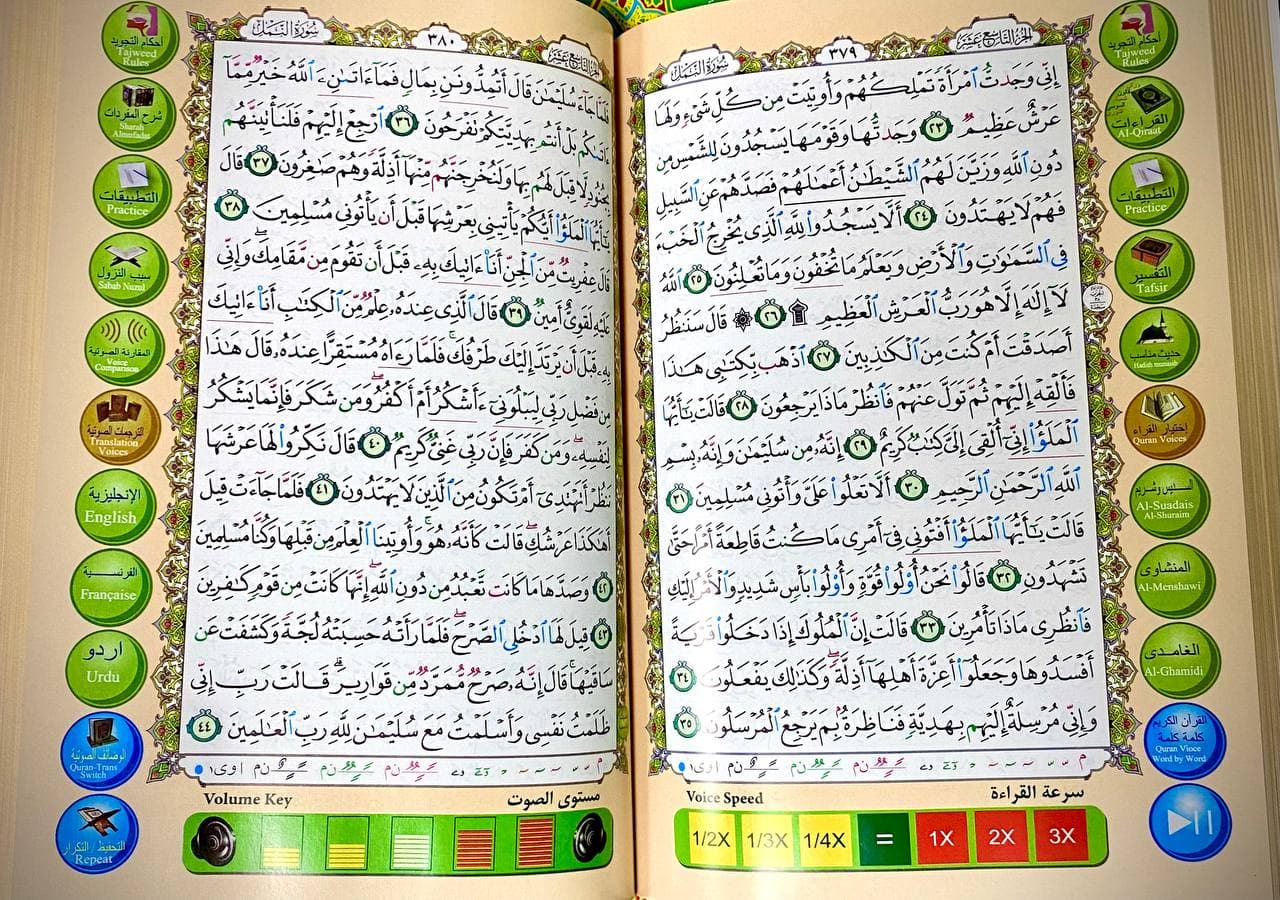 الجزء التاسع عشر
٣٧٩
سورة النمل
إِنِّى وَجَدتُّ ٱمْرَأَةً تَمْلِكُهُمْ وَأُوتِيَتْ مِن كُلِّ شَىْءٍ وَلَهَا
عَرْشٌ عَظِيمٌ ٢٣ وَجَدتُّهَا وَقَوْمَهَا يَسْجُدُونَ لِلشَّمْسِ مِن
دُونِ ٱللَّهِ وَزَيَّنَ لَهُمُ ٱلشَّيْطَٰنُ أَعْمَٰلَهُمْ فَصَدَّهُمْ عَنِ ٱلسَّبِيلِ
فَهُمْ لَا يَهْتَدُونَ ٢٤ أَلَّا يَسْجُدُوا۟ لِلَّهِ ٱلَّذِى يُخْرِجُ ٱلْخَبْءَ
فِى ٱلسَّمَٰوَٰتِ وَٱلْأَرْضِ وَيَعْلَمُ مَا تُخْفُونَ وَمَا تُعْلِنُونَ ٢٥ ٱللَّهُ
لَآ إِلَٰهَ إِلَّا هُوَ رَبُّ ٱلْعَرْشِ ٱلْعَظِيمِ ۩ ٢٦ ۞ قَالَ سَنَنظُرُ
أَصَدَقْتَ أَمْ كُنتَ مِنَ ٱلْكَٰذِبِينَ ٢٧ ٱذْهَب بِّكِتَٰبِى هَٰذَا
فَأَلْقِهْ إِلَيْهِمْ ثُمَّ تَوَلَّ عَنْهُمْ فَٱنظُرْ مَاذَا يَرْجِعُونَ ٢٨ قَالَتْ يَٰٓأَيُّهَا
ٱلْمَلَؤُا۟ إِنِّىٓ أُلْقِىَ إِلَىَّ كِتَٰبٌ كَرِيمٌ ٢٩ إِنَّهُۥ مِن سُلَيْمَٰنَ وَإِنَّهُۥ بِسْمِ
ٱللَّهِ ٱلرَّحْمَٰنِ ٱلرَّحِيمِ ٣٠ أَلَّا تَعْلُوا۟ عَلَىَّ وَأْتُونِى مُسْلِمِينَ ٣١
قَالَتْ يَٰٓأَيُّهَا ٱلْمَلَؤُا۟ أَفْتُونِى فِىٓ أَمْرِى مَا كُنتُ قَاطِعَةً أَمْرًا حَتَّىٰ
تَشْهَدُونِ ٣٢ قَالُوا۟ نَحْنُ أُو۟لُوا۟ قُوَّةٍ وَأُو۟لُوا۟ بَأْسٍ شَدِيدٍ وَٱلْأَمْرُ إِلَيْكِ
فَٱنظُرِى مَاذَا تَأْمُرِينَ ٣٣ قَالَتْ إِنَّ ٱلْمُلُوكَ إِذَا دَخَلُوا۟ قَرْيَةً
أَفْسَدُوهَا وَجَعَلُوٓا۟ أَعِزَّةَ أَهْلِهَآ أَذِلَّةً ۖ وَكَذَٰلِكَ يَفْعَلُونَ ٣٤
وَإِنِّى مُرْسِلَةٌ إِلَيْهِم بِهَدِيَّةٍ فَنَاظِرَةٌۢ بِمَ يَرْجِعُ ٱلْمُرْسَلُونَ ٣٥
Voice Speed
سرعة القراءة
1/2X 1/3X 1/4X = 1X 2X 3X
أحكام التجويد
Tajweed
Rules
القراءات
Al-Qiraat
التطبيقات
Practice
التفسير
Tafsir
حديث مناسب
Hadith munasib
إختيار القراء
Quran Voices
السديس وشريم
Al-Suadais
Al-Shuraim
المنشاوى
Al-Menshawi
الغامدى
Al-Ghamidi
القرآن الكريم
كلمة كلمة
Quran Vioce
Word by Word
الجزء التاسع عشر
٣٨٠
سورة النمل
فَلَمَّا جَآءَ سُلَيْمَٰنَ قَالَ أَتُمِدُّونَنِ بِمَالٍ فَمَآ ءَاتَىٰنِۦَ ٱللَّهُ خَيْرٌ مِّمَّآ
ءَاتَىٰكُم بَلْ أَنتُم بِهَدِيَّتِكُمْ تَفْرَحُونَ ٣٦ ٱرْجِعْ إِلَيْهِمْ فَلَنَأْتِيَنَّهُم
بِجُنُودٍ لَّا قِبَلَ لَهُم بِهَا وَلَنُخْرِجَنَّهُم مِّنْهَآ أَذِلَّةً وَهُمْ صَٰغِرُونَ ٣٧ قَالَ
يَٰٓأَيُّهَا ٱلْمَلَؤُا۟ أَيُّكُمْ يَأْتِينِى بِعَرْشِهَا قَبْلَ أَن يَأْتُونِى مُسْلِمِينَ ٣٨
قَالَ عِفْرِيتٌ مِّنَ ٱلْجِنِّ أَنَا۠ ءَاتِيكَ بِهِۦ قَبْلَ أَن تَقُومَ مِن مَّقَامِكَ ۖ وَإِنِّى
عَلَيْهِ لَقَوِىٌّ أَمِينٌ ٣٩ قَالَ ٱلَّذِى عِندَهُۥ عِلْمٌ مِّنَ ٱلْكِتَٰبِ أَنَا۠ ءَاتِيكَ
بِهِۦ قَبْلَ أَن يَرْتَدَّ إِلَيْكَ طَرْفُكَ ۚ فَلَمَّا رَءَاهُ مُسْتَقِرًّا عِندَهُۥ قَالَ هَٰذَا
مِن فَضْلِ رَبِّى لِيَبْلُوَنِىٓ ءَأَشْكُرُ أَمْ أَكْفُرُ ۖ وَمَن شَكَرَ فَإِنَّمَا يَشْكُرُ
لِنَفْسِهِۦ ۖ وَمَن كَفَرَ فَإِنَّ رَبِّى غَنِىٌّ كَرِيمٌ ٤٠ قَالَ نَكِّرُوا۟ لَهَا عَرْشَهَا
نَنظُرْ أَتَهْتَدِىٓ أَمْ تَكُونُ مِنَ ٱلَّذِينَ لَا يَهْتَدُونَ ٤١ فَلَمَّا جَآءَتْ قِيلَ
أَهَٰكَذَا عَرْشُكِ ۖ قَالَتْ كَأَنَّهُۥ هُوَ ۚ وَأُوتِينَا ٱلْعِلْمَ مِن قَبْلِهَا وَكُنَّا مُسْلِمِينَ
٤٢ وَصَدَّهَا مَا كَانَت تَّعْبُدُ مِن دُونِ ٱللَّهِ ۖ إِنَّهَا كَانَتْ مِن قَوْمٍ كَٰفِرِينَ
٤٣ قِيلَ لَهَا ٱدْخُلِى ٱلصَّرْحَ ۖ فَلَمَّا رَأَتْهُ حَسِبَتْهُ لُجَّةً وَكَشَفَتْ عَن
سَاقَيْهَا ۚ قَالَ إِنَّهُۥ صَرْحٌ مُّمَرَّدٌ مِّن قَوَارِيرَ ۗ قَالَتْ رَبِّ إِنِّى
ظَلَمْتُ نَفْسِى وَأَسْلَمْتُ مَعَ سُلَيْمَٰنَ لِلَّهِ رَبِّ ٱلْعَٰلَمِينَ ٤٤
Volume Key
مستوى الصوت
أحكام التجويد
Tajweed
Rules
شرح المفردات
Sharah
Almufadat
التطبيقات
Practice
سبب النزول
Sabab Nuzul
المقارنة الصوتية
Voice
Comparison
الترجمات الصوتية
Translation
Voices
الإنجليزية
English
الفرنسية
Française
اردو
Urdu
الوصائف الصوتية
Quran-Trans
Switch
التحفيظ / التكرار
Repeat